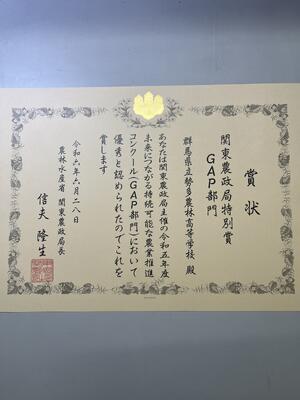 賞状
関東農政局特別賞
GAP部門
群馬県立勢多農林高等学校 殿
あなたは関東農政局主催の令和五年度
未来につながる持続可能な農業推進
コンクール(GAP部門)において
優秀と認められたのでこれを
賞します
令和六年六月二八日
農林水産省 関東農政局長
信夫 隆生